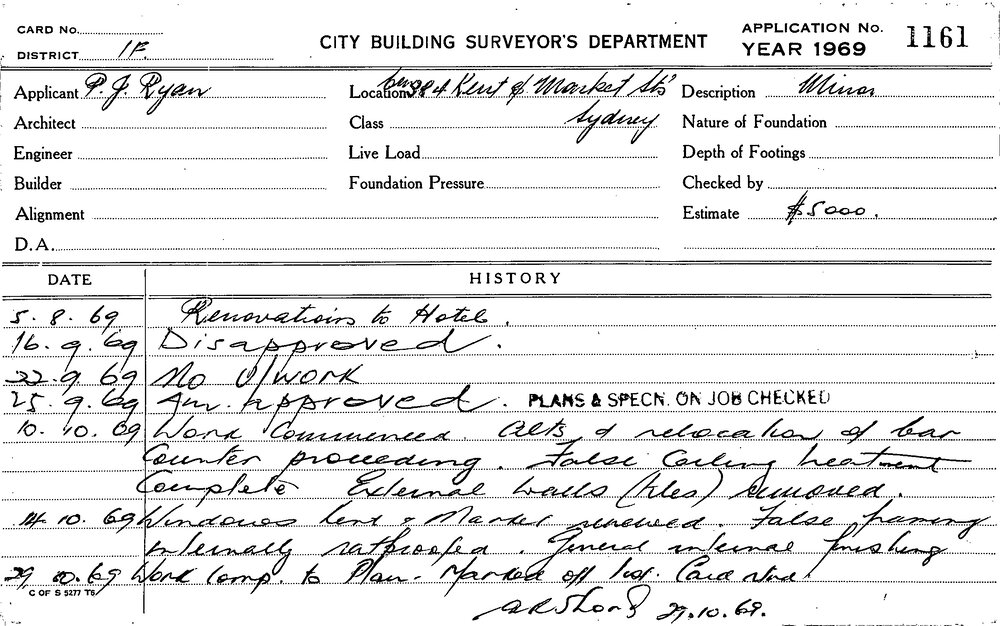 CARD No.
DISTRICT 1F.
CITY BUILDING SURVEYOR'S DEPARTMENT
APPLICATION No. 1161
YEAR 1969
Applicant P. J. Ryan
Location 384 Kent & Market Sts
Description Minor
Architect
Class Sydney
Nature of Foundation
Engineer
Live Load
Depth of Footings
Builder
Foundation Pressure
Checked by
Alignment
Estimate $5000.
D.A.
DATE HISTORY
5.8.69 Renovations to Hotel.
16.9.69 Disapproved.
22.9.69 No U/WORK
25.9.69 Am. approved. PLANS & SPECN. ON JOB CHECKED
10.10.69 Work Commenced. Alts & relocation of bar
Counter proceeding. False Ceiling treatment
Complete External walls (tiles) removed.
14.10.69 Windows Kent & Market renewed. False framing
internally ratproofed. General internal finishing
29.10.69 Work Comp. to Plan. Marked off Card
C OF S 5277 T6
29.10.69.